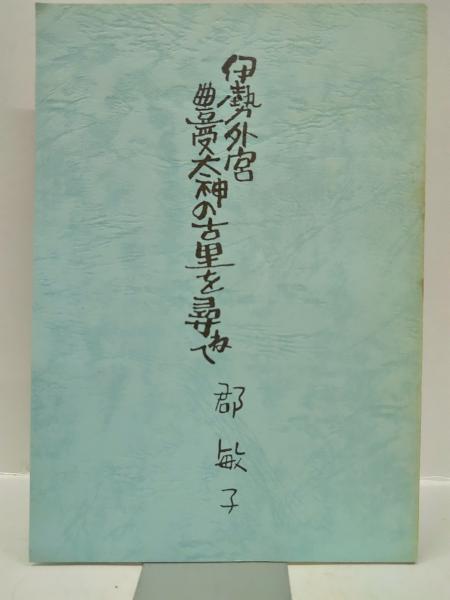 伊勢外宮
豊受太神の古里を尋ねて
郡敏子